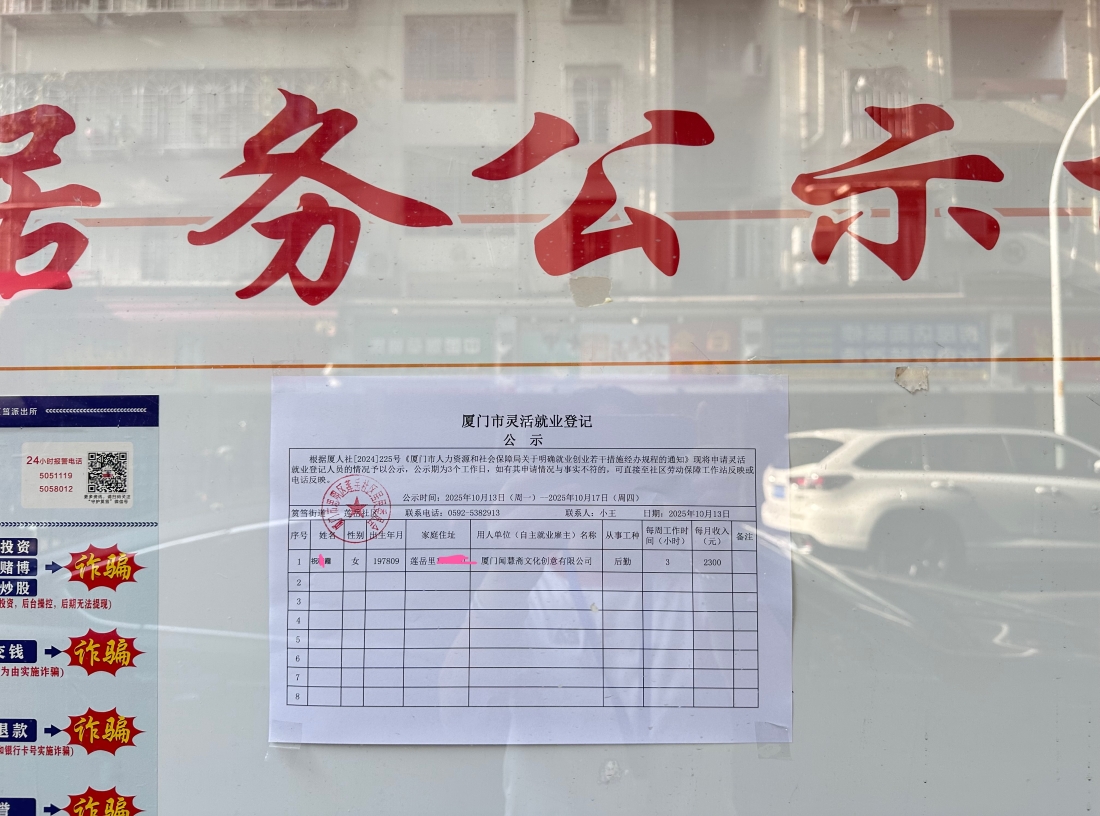 居务公示
厦门市灵活就业登记
公 示
根据厦人社[2024]225号《厦门市人力资源和社会保障局关于明确就业创业若干措施经办规程的通知》现将申请灵活
就业登记人员的情况予以公示，公示期为3个工作日，如有其申请情况与事实不符的，可直接至社区劳动保障工作站反映或
电话反映。
公示时间：2025年10月13日（周一）—2025年10月17日（周四）
筼筜街道 莲岳社区 联系电话：0592-5382913 联系人：小王 日期：2025年10月13日
序号 姓名 性别 出生年月 家庭住址 用人单位（自主就业雇主）名称 从事工种 每周工作时间（小时） 每月收入（元） 备注
1 祝 女 197809 莲岳里 厦门闻慧斋文化创意有限公司 后勤 3 2300
2
3
4
5
6
7
8
筜派出所
24小时报警电话
5051119
5058012
投资
赌博
炒股
诈骗
投资，后台操控，后期无法提现)
交钱
诈骗
为由实施诈骗)
退款
诈骗
和银行卡号实施诈骗)
诈骗